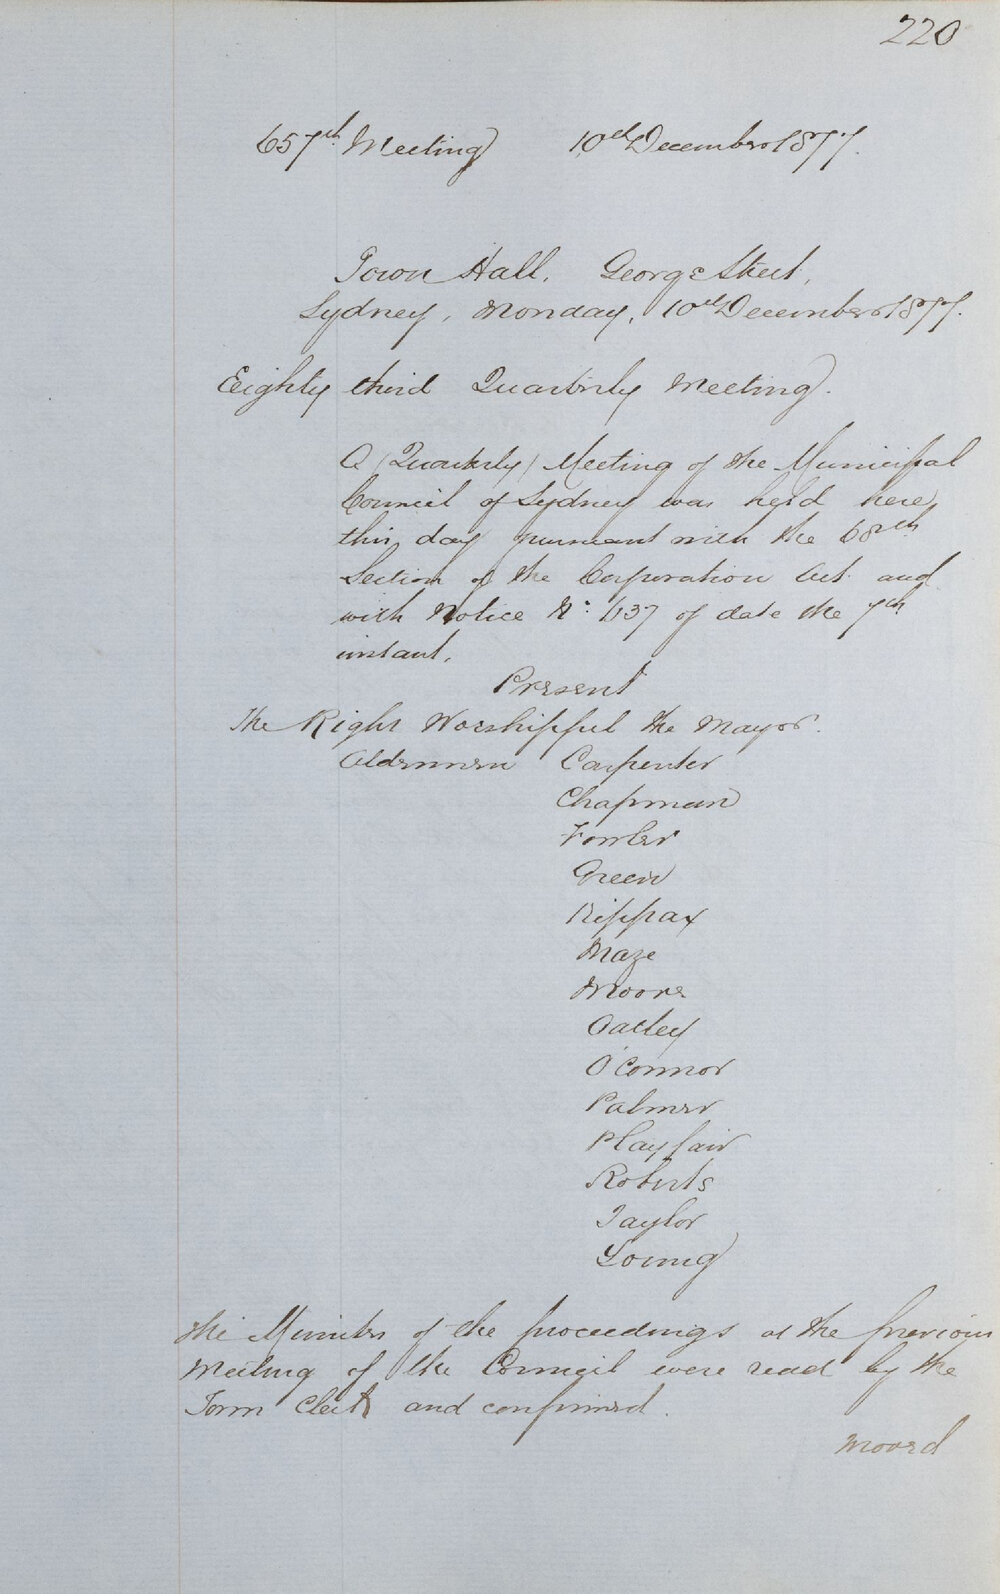 220
657th Meeting 10th December 1877.
Town Hall. George Street,
Sydney, Monday, 10th December 1877.
Eighty third Quarterly Meeting.
A (Quarterly) Meeting of the Municipal
Council of Sydney was held here
this day pursuant with the 68th
Section of the Corporation Act and
with Notice No: 637 of date the 7th
instant.
Present
The Right Worshipful the Mayor.
Aldermen Carpenter
Chapman
Fowler
Green
Kippax
Maze
Moore
Oatley
O'Connor
Palmer
Playfair
Roberts
Taylor
Young
The Minutes of the proceedings at the previous
Meeting of the Council were read by the
Town Clerk and confirmed.
Moved